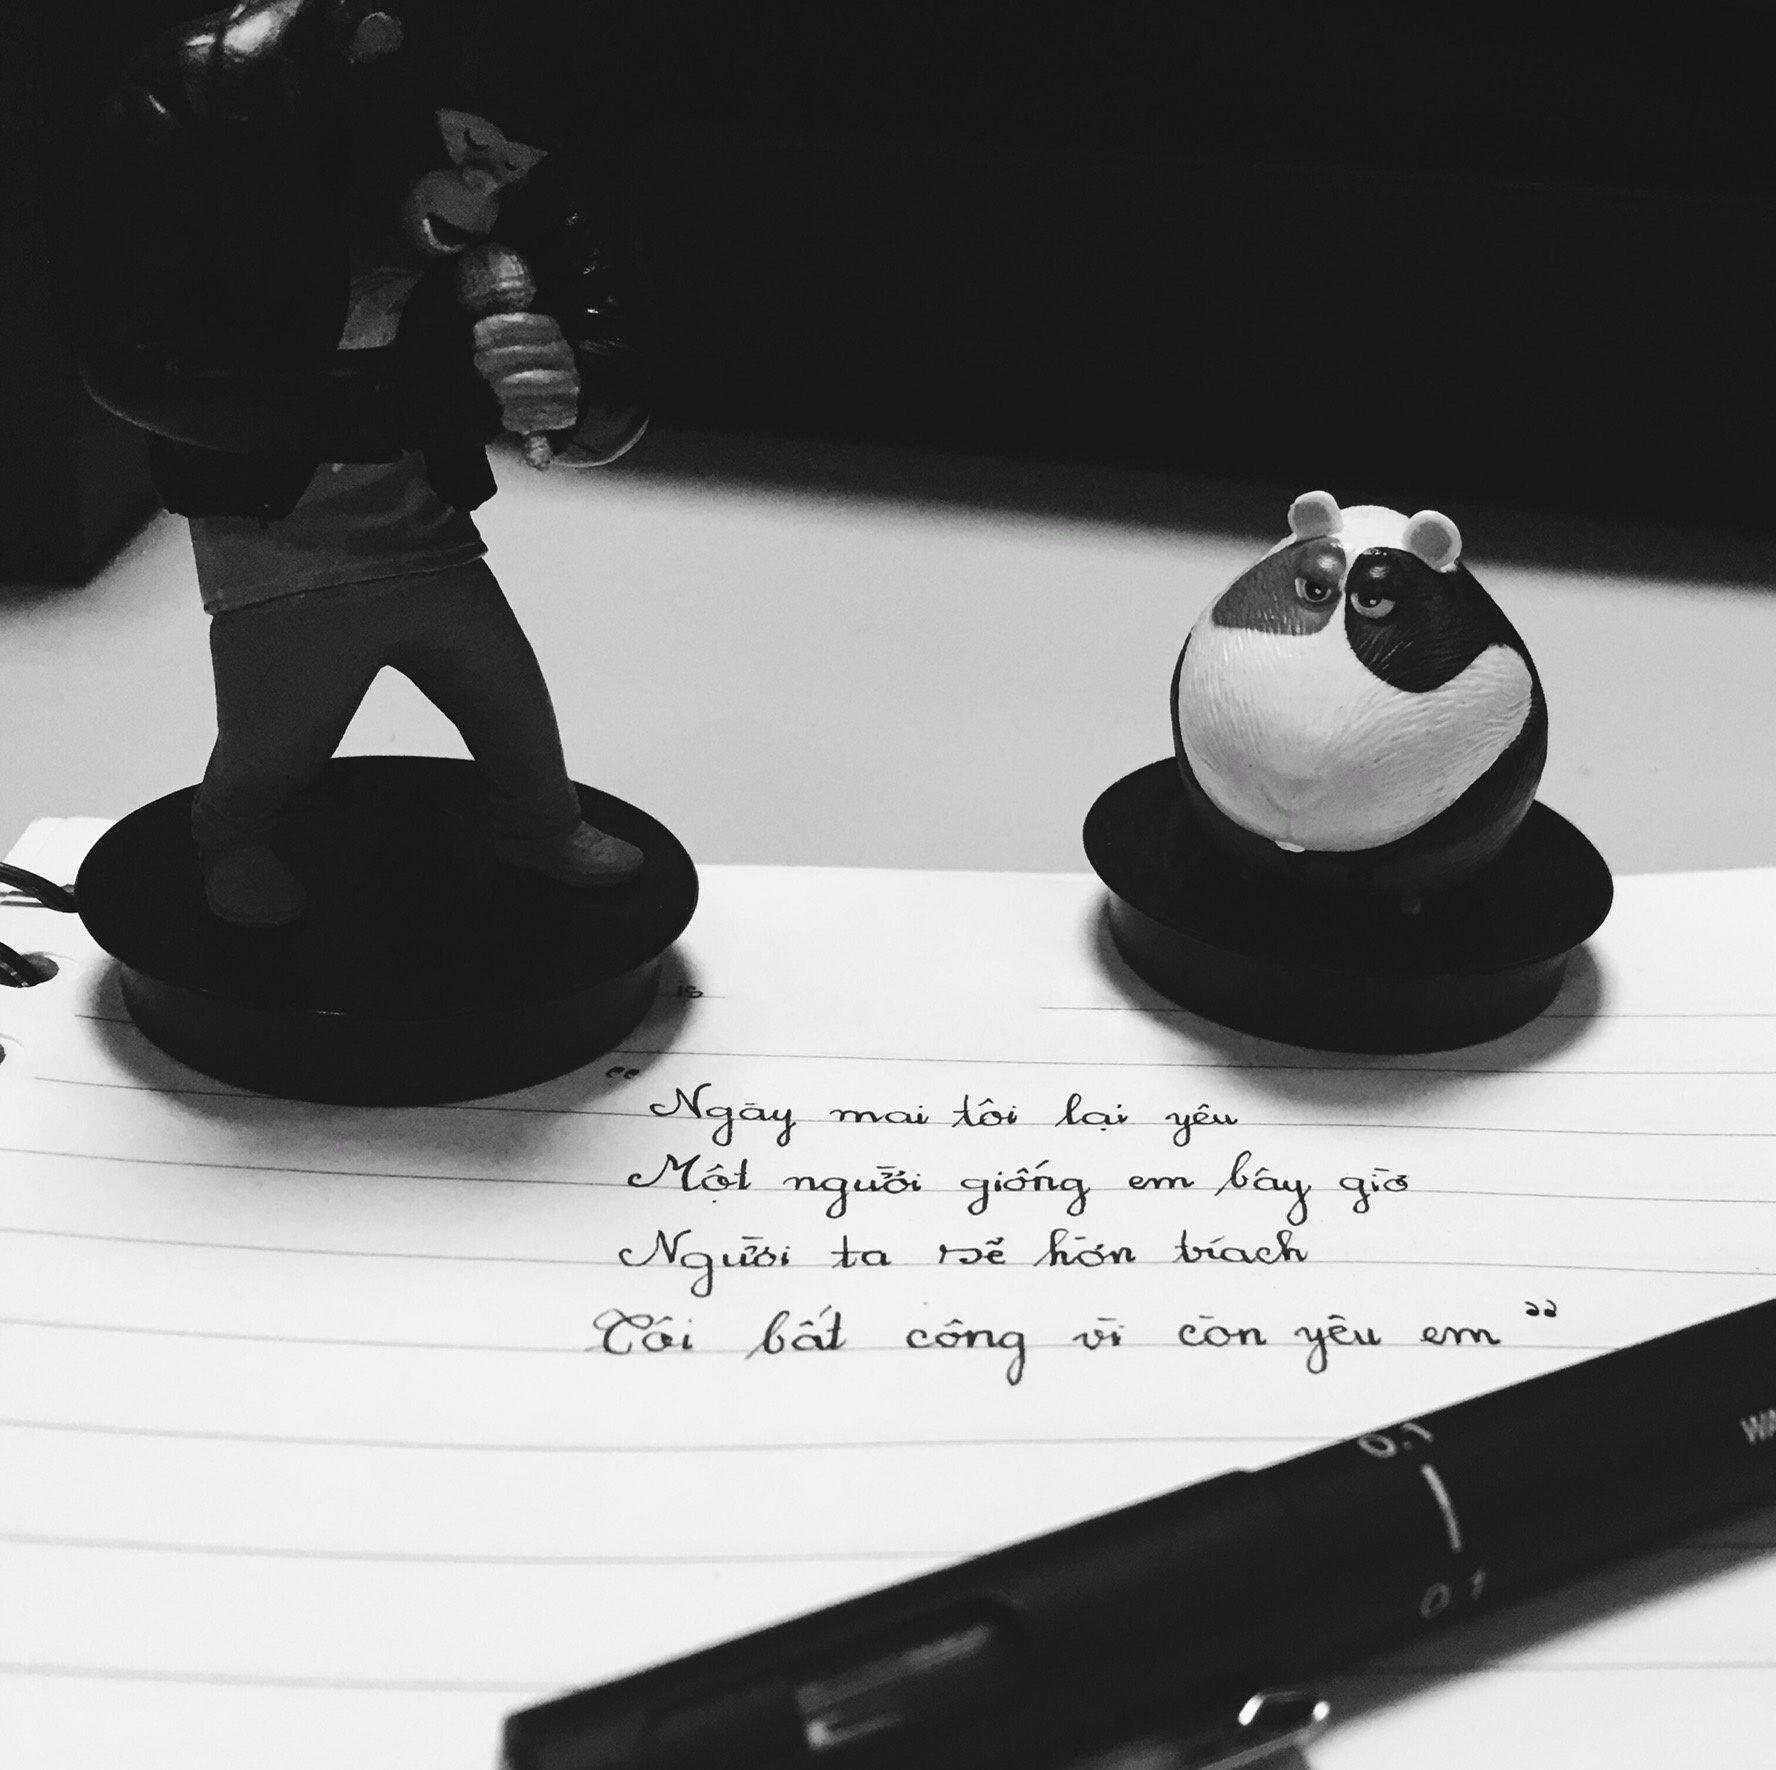 is
"Ngày mai tôi lại yêu
Một người giống em bây giờ
Người ta sẽ hờn trách
Tôi bất công vì còn yêu em"
0.1
0.1